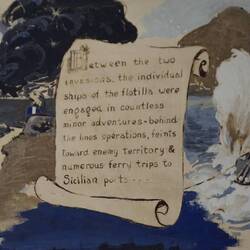 Between the two
invasions, the individual
ships of the flotilla were
engaged in countless
minor adventures - behind
the lines operations, feints
toward enemy territory &
numerous ferry trips to
Sicilian ports ----